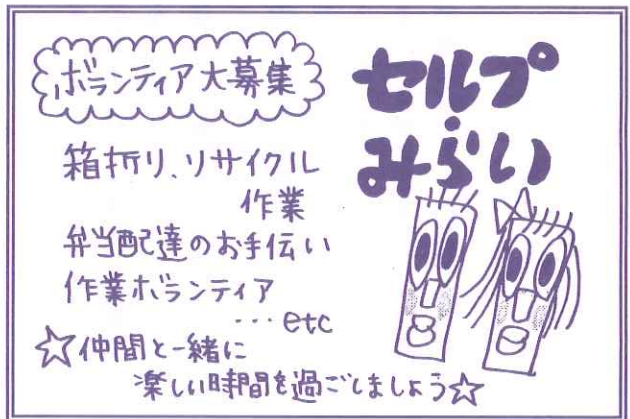 ボランティア大募集
セルプ・みらい
箱折り、リサイクル
作業
弁当配達のお手伝い
作業ボランティア
・・・etc
☆仲間と一緒に
楽しい時間を過ごしましょう☆